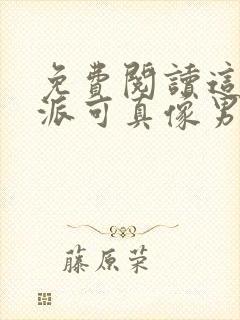 免費閱讀這
派可真像男
藤原荣